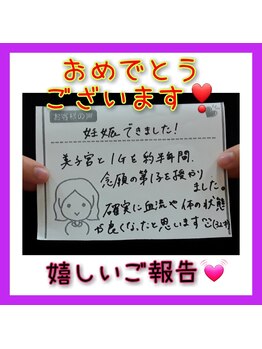 おめでとう
ございます
お客様の声
妊娠できました!
美子宮と1Gを約半年間、
念願の第1子を授かり
ました。
確実に血流や体の状態
が良くなったと思います
嬉しいご報告